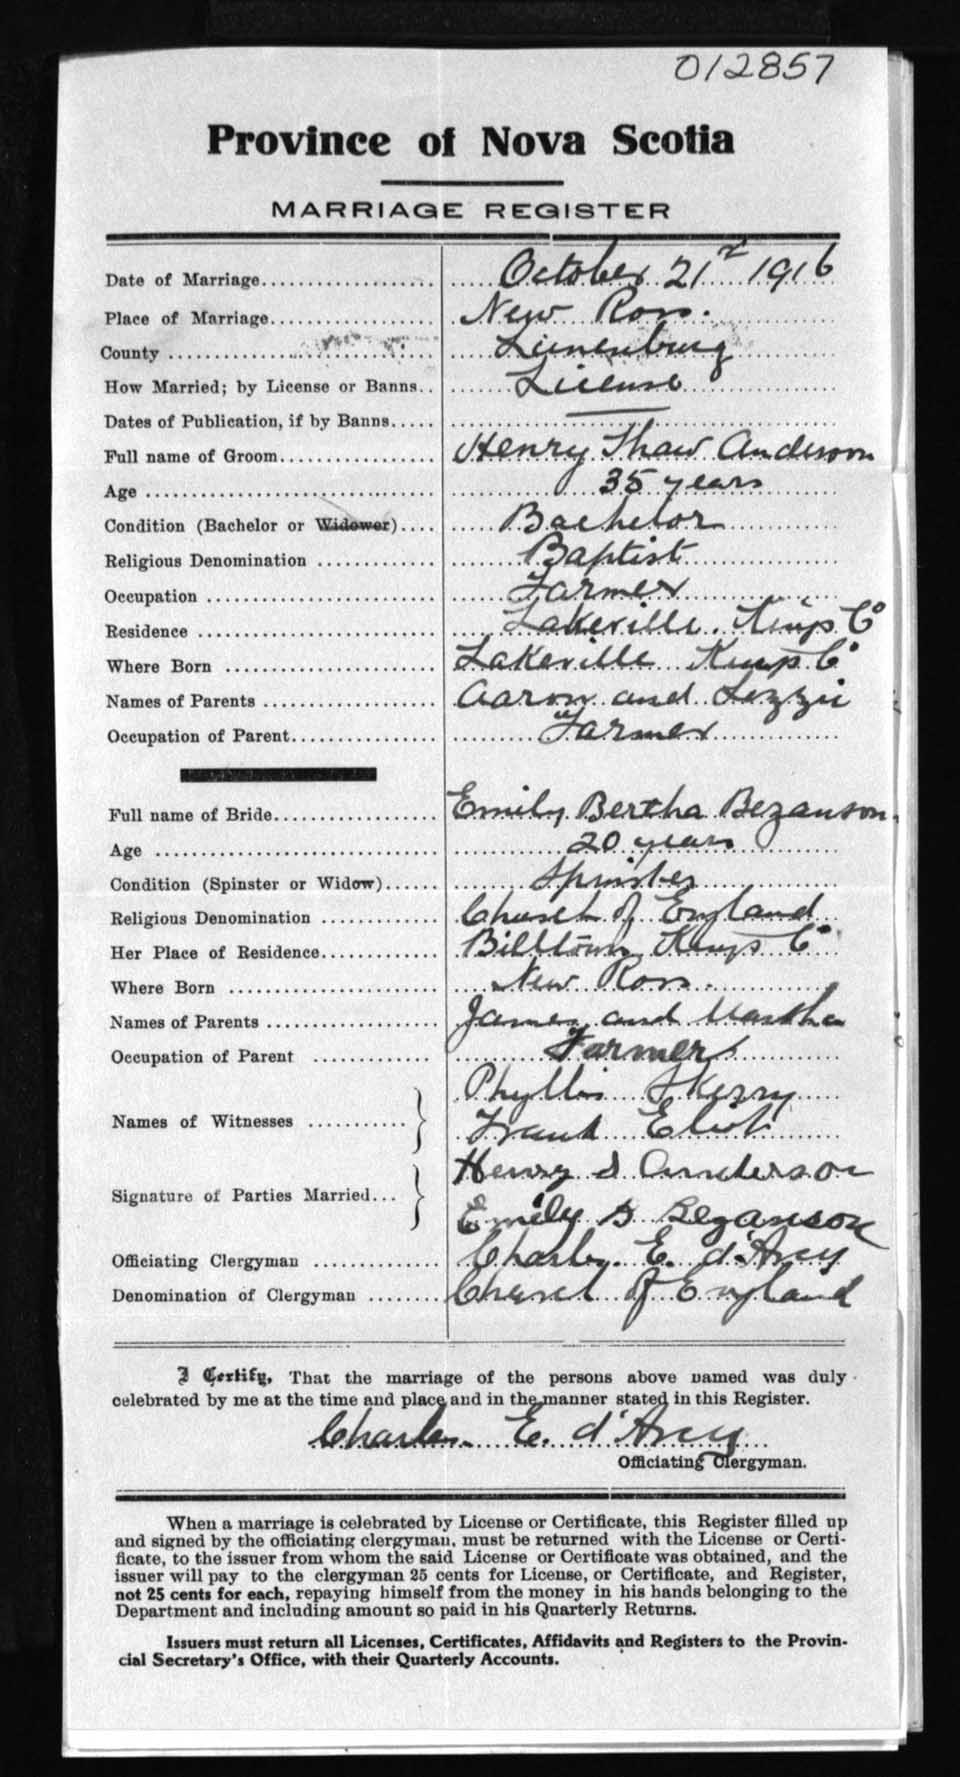 012857
Province of Nova Scotia
MARRIAGE REGISTER
Date of Marriage.................... October 21st 1916
Place of Marriage.................... New Ross.
County .................... Lunenburg
How Married; by License or Banns.. License
Dates of Publication, if by Banns..... —
Full name of Groom.................... Henry Shaw Anderson
Age .................... 35 years
Condition (Bachelor or Widower).... Bachelor
Religious Denomination .................... Baptist
Occupation .................... Farmer
Residence .................... Lakeville. Kings Co
Where Born .................... Lakeville Kings Co
Names of Parents .................... Aaron and Lezzie
Occupation of Parent.................... Farmer
Full name of Bride.................... Emily Bertha Bezanson.
Age .................... 20 years
Condition (Spinster or Widow)...... Spinster
Religious Denomination .................... Church of England
Her Place of Residence.................... Billtown Kings Co
Where Born .................... New Ross.
Names of Parents .................... James and Martha
Occupation of Parent .................... Farmer
Names of Witnesses ........... } Phyllis Skerry
Frank Eliot
Signature of Parties Married... } Henry S Anderson
Emily B Bezanson
Officiating Clergyman .............. Charles. E. d'Arcy
Denomination of Clergyman ........ Church of England
I Certify, That the marriage of the persons above named was duly
celebrated by me at the time and place and in the manner stated in this Register.
Charles. E. d'Arcy
Officiating Clergyman.
When a marriage is celebrated by License or Certificate, this Register filled up
and signed by the officiating clergyman, must be returned with the License or Certi-
ficate, to the issuer from whom the said License or Certificate was obtained, and the
issuer will pay to the clergyman 25 cents for License, or Certificate, and Register,
not 25 cents for each, repaying himself from the money in his hands belonging to the
Department and including amount so paid in his Quarterly Returns.
Issuers must return all Licenses, Certificates, Affidavits and Registers to the Provin-
cial Secretary's Office, with their Quarterly Accounts.